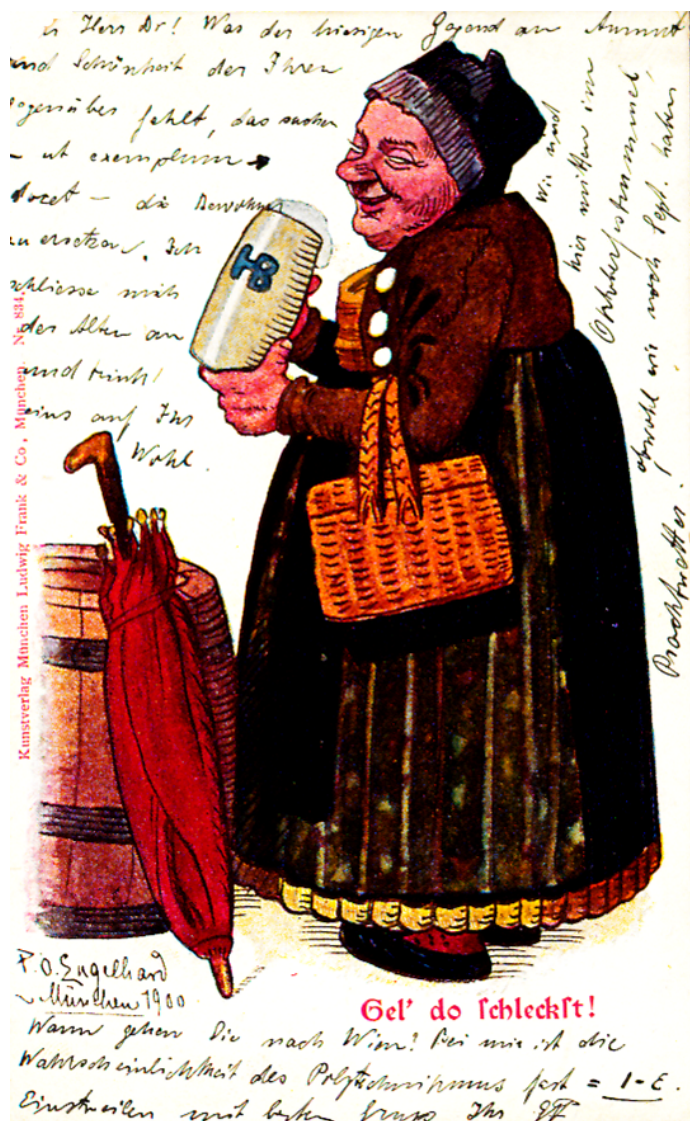 Herr Dr! Was der hiesigen Gegend an Anmut
und Schönheit der Ihren
gegenüber fehlt, das suchen
ut exemplum
docet – die Bewohner
zu ersetzen. Ich
schliesse mich
der Alten an
und trink'
eins auf Ihr
Wohl.
Wir sind
hier mitten im
Oktoberfestrummel,
obwohl wir noch Sept. haben
Prachtwetter!
HB
Kunstverlag München Ludwig Frank & Co., München. Nr. 834.
P.O. Engelhard
München 1900
Gel' do schleckst!
Wann gehen Sie nach Wien? Bei mir ist die
Wahrscheinlichkeit des fast = 1-ε.
Einstweilen mit besten Gruss Ihr